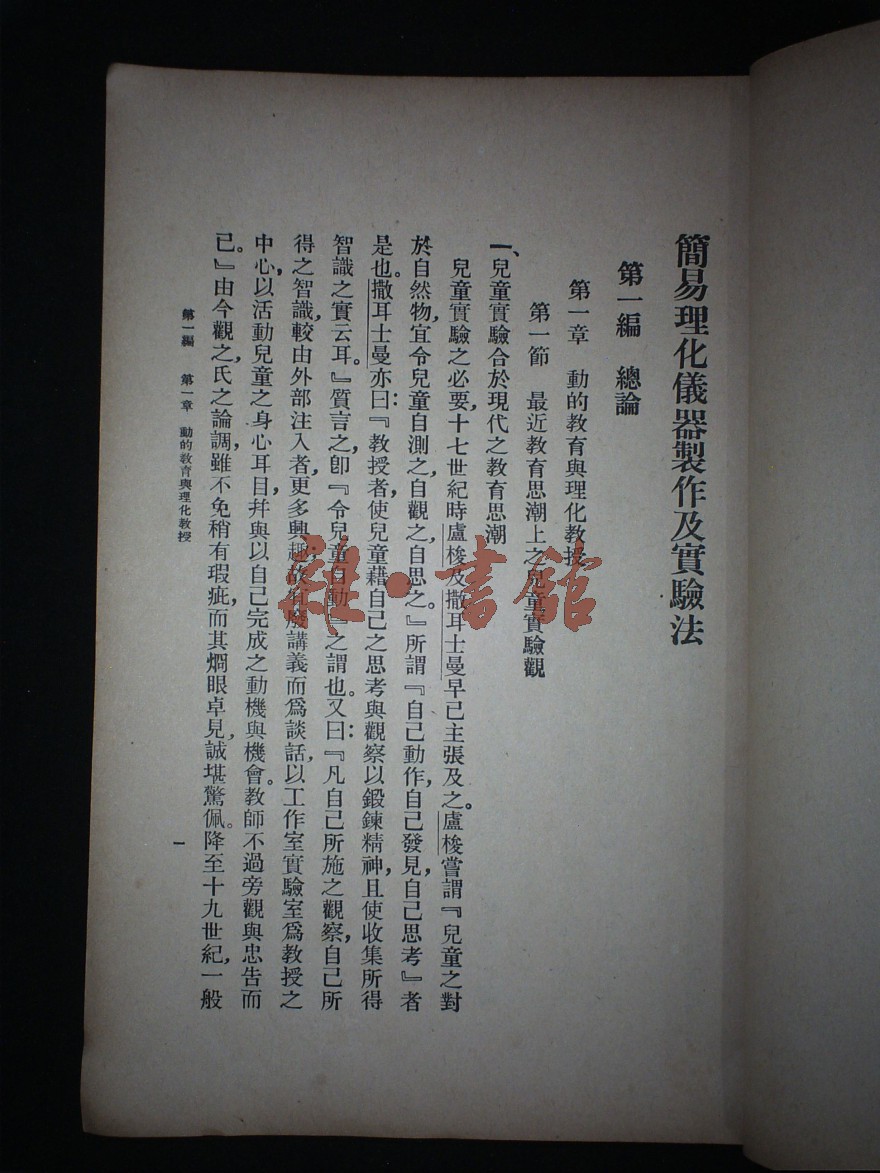 簡易理化儀器製作及實驗法
第一編　總論
第一章　動的教育與理化教授
第一節　最近教育思潮上之兒童實驗觀
一、兒童實驗合於現代之教育思潮
兒童實驗之必要，十七世紀時盧梭及撒耳士曼早已主張及之。盧梭嘗謂『兒童之對
於自然物，宜令兒童自測之，自觀之，自思之。』所謂『自己動作，自己發見，自己思考』者
是也。撒耳士曼亦曰：『教授者，使兒童藉自己之思考與觀察以鍛鍊精神，且使收集所得
智識之實云耳。』質言之，卽『令兒童自動』之謂也。又曰：『凡自己所施之觀察，自己所
得之智識，較由外部注入者，更多興趣；故有廢講義而爲談話，以工作室實驗室爲教授之
中心，以活動兒童之身心耳目，幷與以自己完成之動機與機會。教師不過旁觀與忠告而
已。』由今觀之，氏之論調，雖不免稍有瑕疵，而其燗眼卓見，誠堪驚佩。降至十九世紀，一般
第一編　第一章　動的教育與理化教授
一
雜·書館